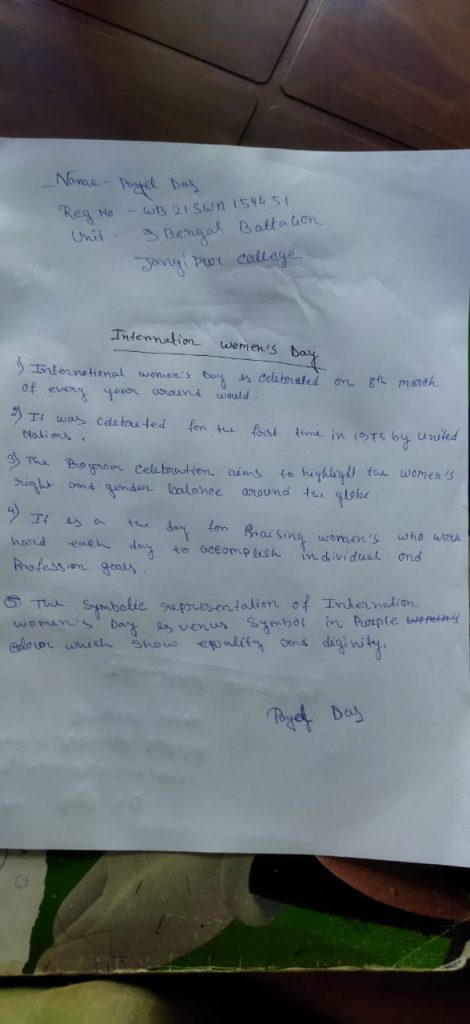 Name - Payel Das
Reg No. - WB21SWA154451
Unit - 9 Bengal Battalion
Jangipur college
Internation women's Day
1) International women's Day is celebrated on 8th march
of every year around would.
2) It was celebreted for the first time in 1975 by United
Nations.
3) The Program celebration aims to highlight the women's
right and gender balance around the globe.
4) It is a the day for Praising women's who work
hard each day to accomplish individual and
Profession goals.
5 The Symbolic representation of Internation
women's Day is venus Symbol in Purple women's
colour which show equality and diginity.
Payel Das